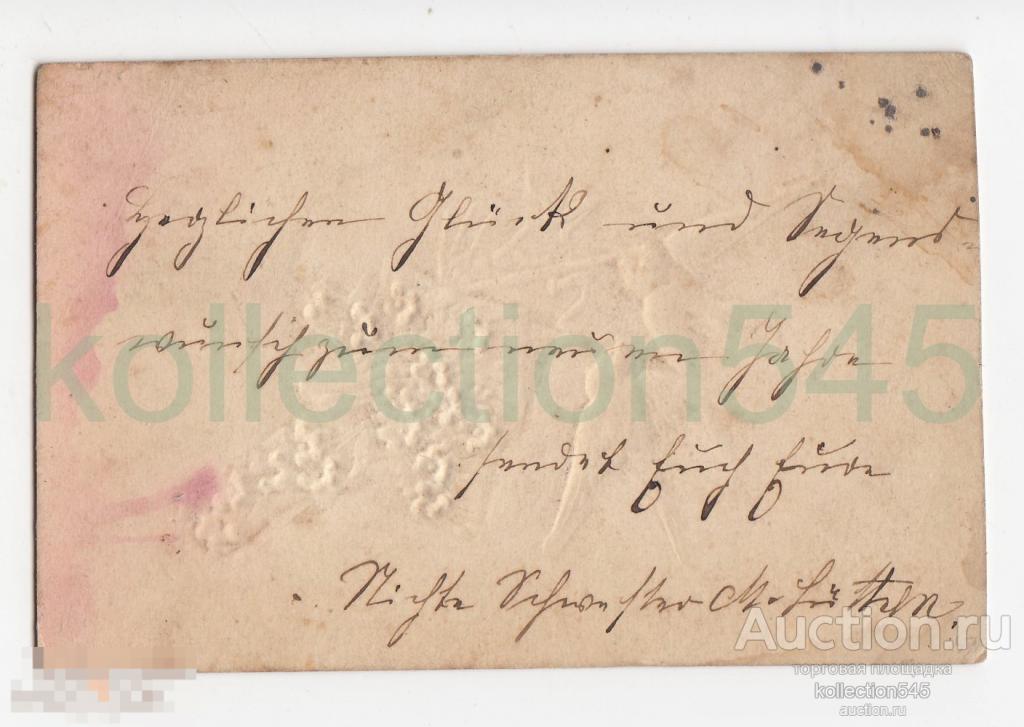 Herzlichen Glück und Segens-
wunsch zum neuen Jahre
sendet Euch Eure
Nichte Schwester M.
kollection545
Auction.ru
торговая площадка
kollection545
auction.ru